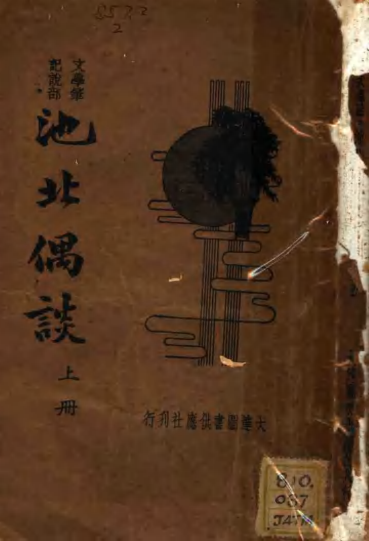 8573
2
文學筆
記說部
池北偶談
上冊
大達圖書供應社刊行
810.
037